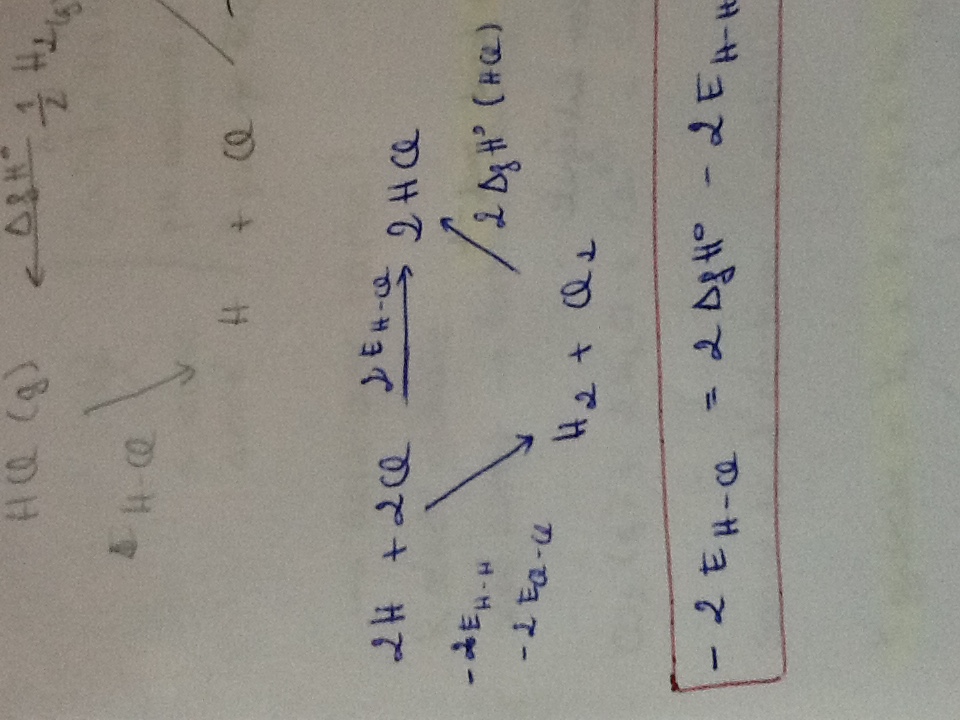 HCl (g) ← ΔfH° 1/2 H2(g)
E H-Cl
H + Cl
2H + 2Cl 2E H-Cl → 2HCl
-2E H-H
-2E Cl-Cl
2 ΔfH° (HCl)
H2 + Cl2
- 2 E H-Cl = 2 ΔfH° - 2E H-H